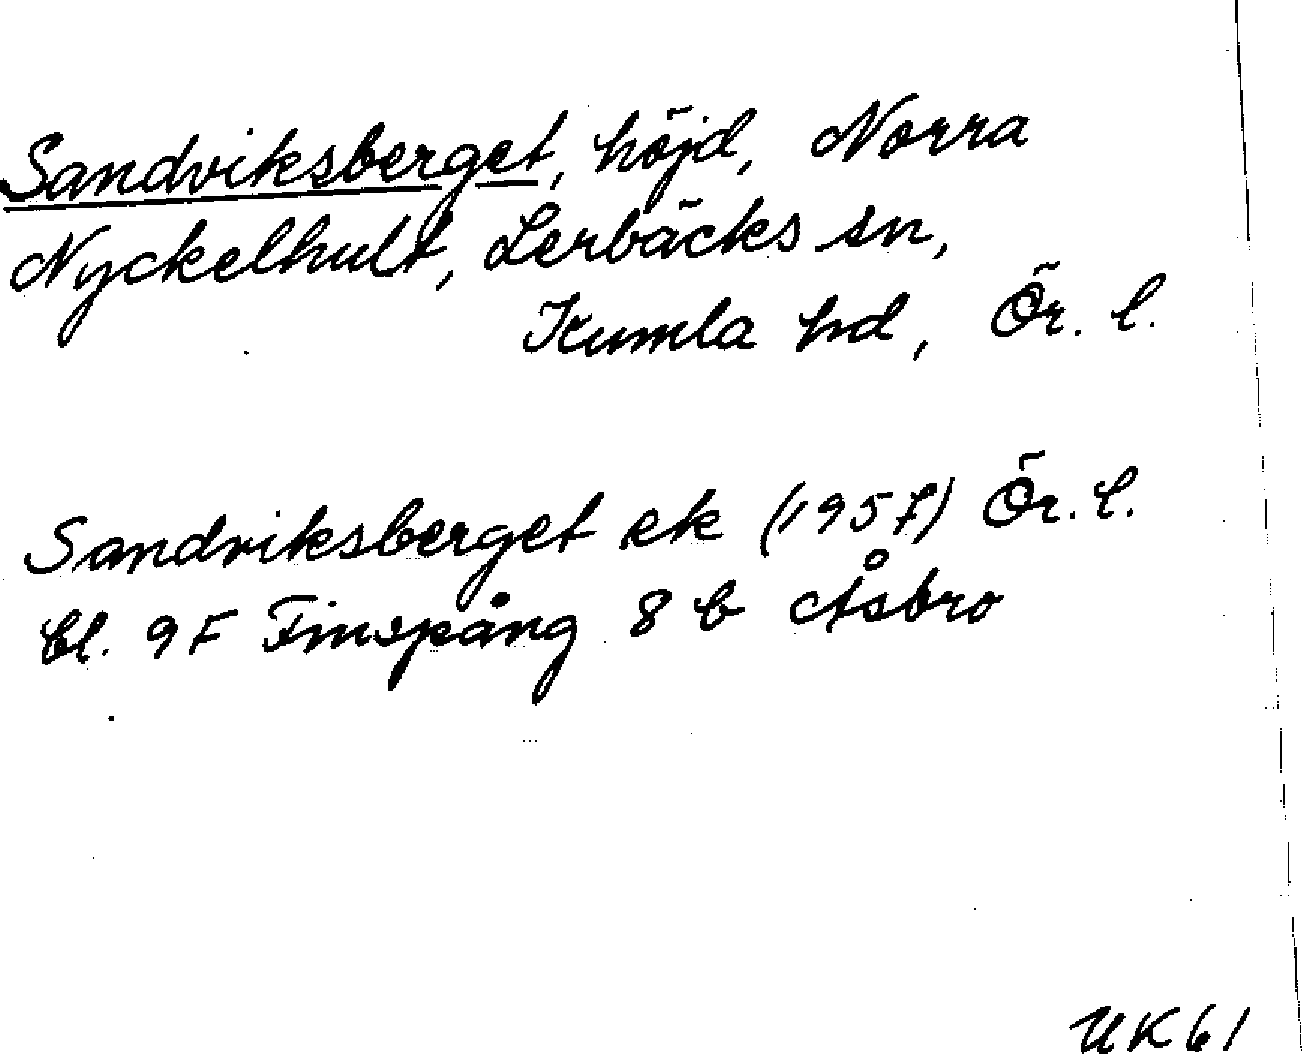 Sandviksberget, höjd, Norra
Nyckelhult, Lerbäcks sn,
Kumla hd, Ör. l.
Sandviksberget ek (1957) Ör. l.
bl. 9F Finspång 8 b Åsbro
UK61